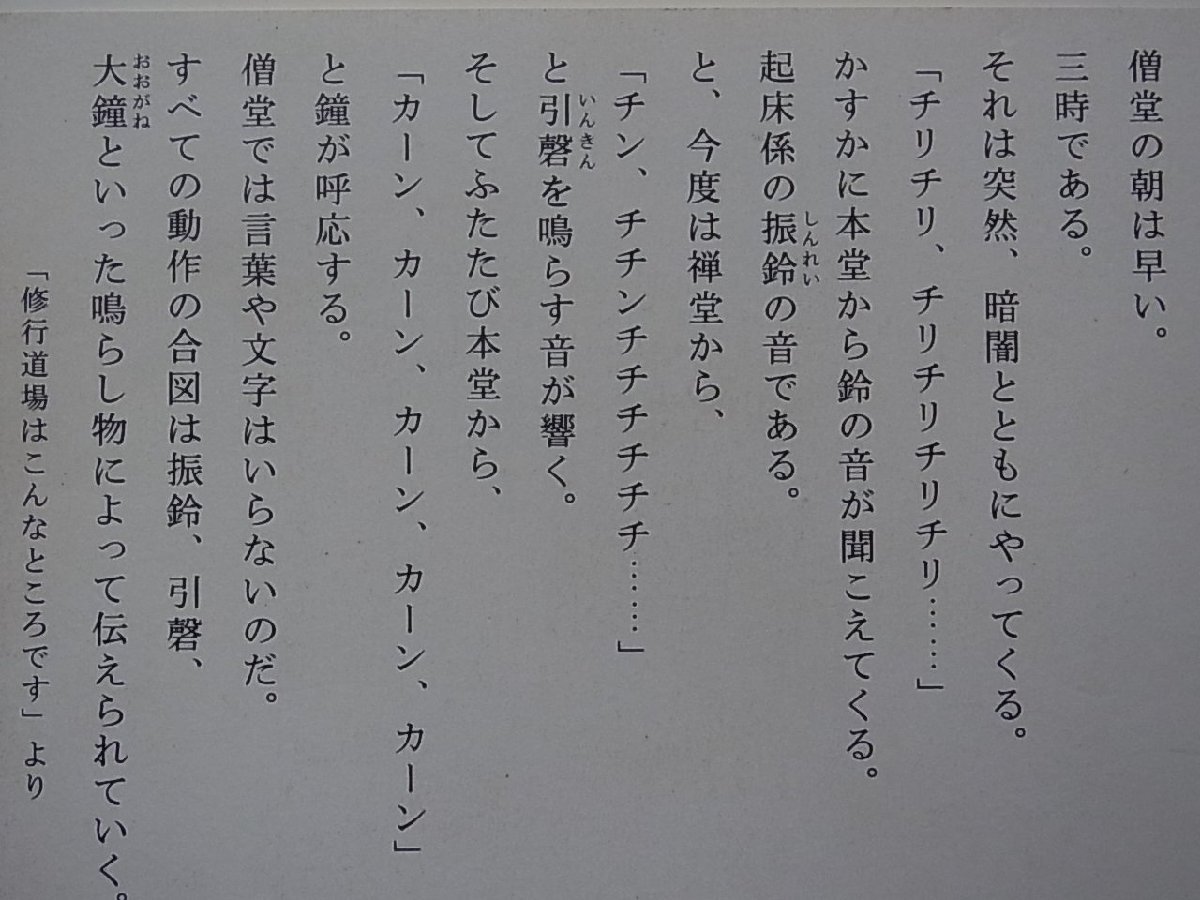 僧堂の朝は早い。
三時である。
それは突然、暗闇とともにやってくる。
「チリチリ、チリチリチリチリ……」
かすかに本堂から鈴の音が聞こえてくる。
起床係の振鈴の音である。
しんれい
と、今度は禅堂から、
「チン、チチンチチチチチ……」
と引磬を鳴らす音が響く。
いんきん
そしてふたたび本堂から、
「カーン、カーン、カーン、カーン、カーン」
と鐘が呼応する。
僧堂では言葉や文字はいらないのだ。
すべての動作の合図は振鈴、引磬、
大鐘といった鳴らし物によって伝えられていく。
おおがね
「修行道場はこんなところです」より